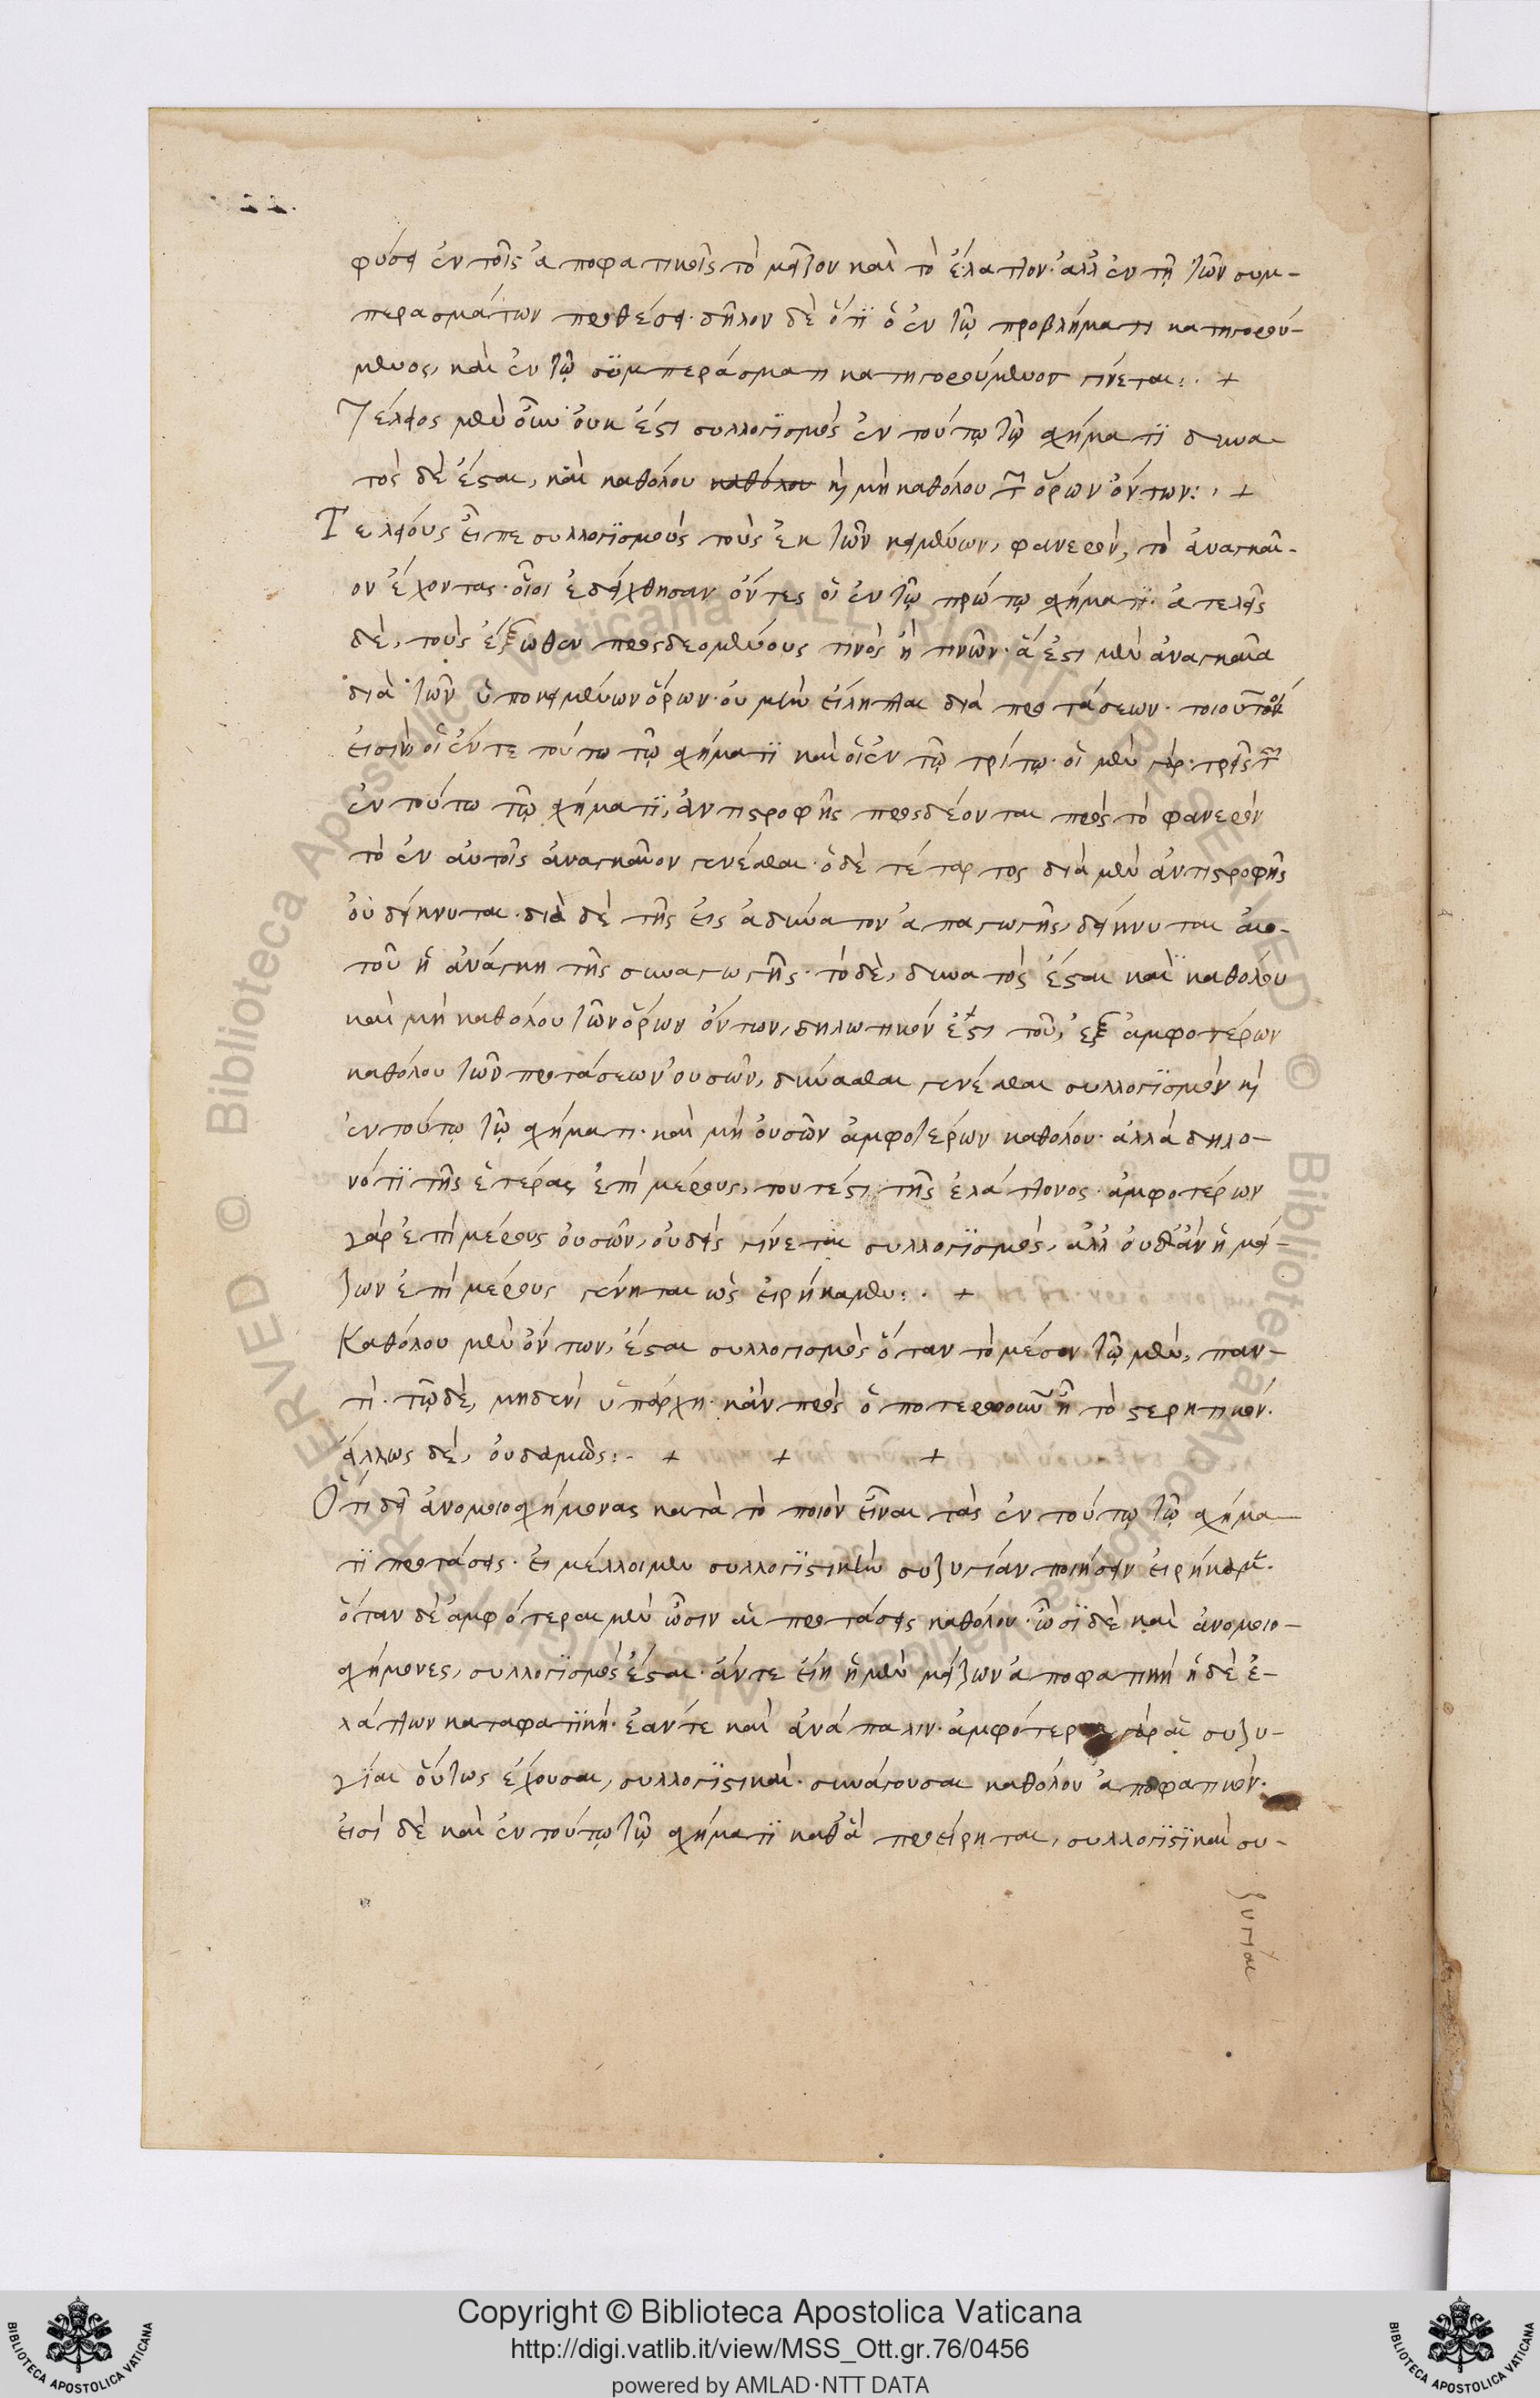 φύσει ἐν τοῖς ἀποφατικοῖς τὸ μεῖζον καὶ τὸ ἔλαττον· ἀλλ ἐν τῇ τῶν συμ-
περασμάτων προθέσει· δῆλον δὲ ὅτι ὁ ἐν τῷ προβλήματι κατηγορού-
μενος, καὶ ἐν τῷ συμπεράσματι κατηγορούμενος γίνεται:. +
Τέλειος μὲν οὖν οὐκ ἔσται συλλογισμὸς ἐν τούτῳ τῷ σχήματι δυνα
τὸς δὲ ἔσται, καὶ καθόλου καθόλου καὶ μὴ καθόλου τῶν ὅρων ὄντων:, +
Τελείους εἶπε συλλογισμοὺς τοὺς ἐκ τῶν κειμένων, φανερὸν, τὸ ἀναγκαῖ-
ον ἔχοντας· οἷοι ἐδείχθησαν ὄντες οἱ ἐν τῷ πρώτῳ σχήματι· ἀτελεῖς
δὲ, τοὺς ἔξωθεν προσδεομένους τινὸς ἢ τινῶν· ἅ ἐστι μὲν ἀναγκαῖα
διὰ τῶν ὑποκειμένων ὅρων· οὐ μὴν εἴληπται διὰ προτάσεων· τοιοῦτοι
εἰσὶν οἵ ἐν τε τούτω τῷ σχήματι καὶ οἱ ἐν τῷ τρίτῳ· οἱ μὲν γὰρ· τρεῖς τῶν
ἐν τούτω τῷ σχήματι, ἀντιστροφῆς προσδέονται πρὸς τὸ φανερὸν
τὸ ἐν αὐτοῖς ἀναγκαῖον γενέσθαι· ὁ δὲ τέταρτος διὰ μὲν ἀντιστροφῆς
οὐ δείκνυται· διὰ δὲ τῆς εἰς ἀδύνατον ἀπαγωγῆς, δείκνυται αὐ-
τοῦ ἡ ἀνάγκη τῆς συναγωγῆς· τὸ δὲ, δυνατὸς ἔσται καὶ καθόλου
καὶ μὴ καθόλου τῶν ὅρων ὄντων, δηλωτικόν ἐστι τοῦ, ἐξ ἀμφοτέρων
καθόλου τῶν προτάσεων οὐσῶν, δύνασθαι γενέσθαι συλλογισμὸν καὶ
ἐν τούτῳ τῷ σχήματι· καὶ μὴ οὐσῶν ἀμφοτέρων καθόλου· ἀλλὰ δηλο-
νότι τῆς ἑτέρας ἐπὶ μέρους, τουτέστι τῆς ἐλάττονος· ἀμφοτέρων
γὰρ ἐπὶ μέρους οὐσῶν, οὐδεὶς γίνεται συλλογισμὸς, ἀλλ οὐδ ἂν ἡ μεί-
ζων ἐπὶ μέρους γένηται ὡς εἰρήκαμεν:. +
Καθόλου μὲν ὄντων, ἔσται συλλογισμὸς ὅταν τὸ μέσον τῷ μὲν, παν-
τὶ· τῷ δὲ, μηδενὶ ὑπάρχη· κἂν πρὸς ὁποτερῳοῦν ᾖ τὸ στερητικόν.
ἄλλως δὲ, οὐδαμῶς:. + + +
Ὅτι δεῖ ἀνομοιοσχήμονας κατὰ τὸ ποιὸν εἶναι τὰς ἐν τούτῳ τῷ σχήμα
τι προτάσεις· εἰ μέλλοιμεν συλλογιστικὴν συζυγίαν ποιήσειν εἰρήκαμεν.
ὅταν δὲ ἀμφότεραι μὲν ὦσιν αἱ προτάσεις καθόλου· ὦσι δὲ καὶ ἀνομοιο-
σχήμονες, συλλογισμὸς ἔσται· ἄν τε εἴη ἡ μὲν μείζων ἀποφατικὴ ἡ δὲ ἐ-
λάττων καταφατικὴ· ἐάν τε καὶ ἀνάπαλιν· ἀμφότεραι γὰρ αἱ συζυ-
γίαι οὕτως ἔχουσαι, συλλογιστικαὶ· συνάγουσαι καθόλου ἀποφατικὸν.
εἰσὶ δὲ καὶ ἐν τούτῳ τῷ σχήματι καθ ἃ προείρηται, συλλογιστικαὶ συ-
ζυγίαι
Copyright © Biblioteca Apostolica Vaticana
http://digi.vatlib.it/view/MSS_Ott.gr.76/0456
powered by AMLAD·NTT DATA